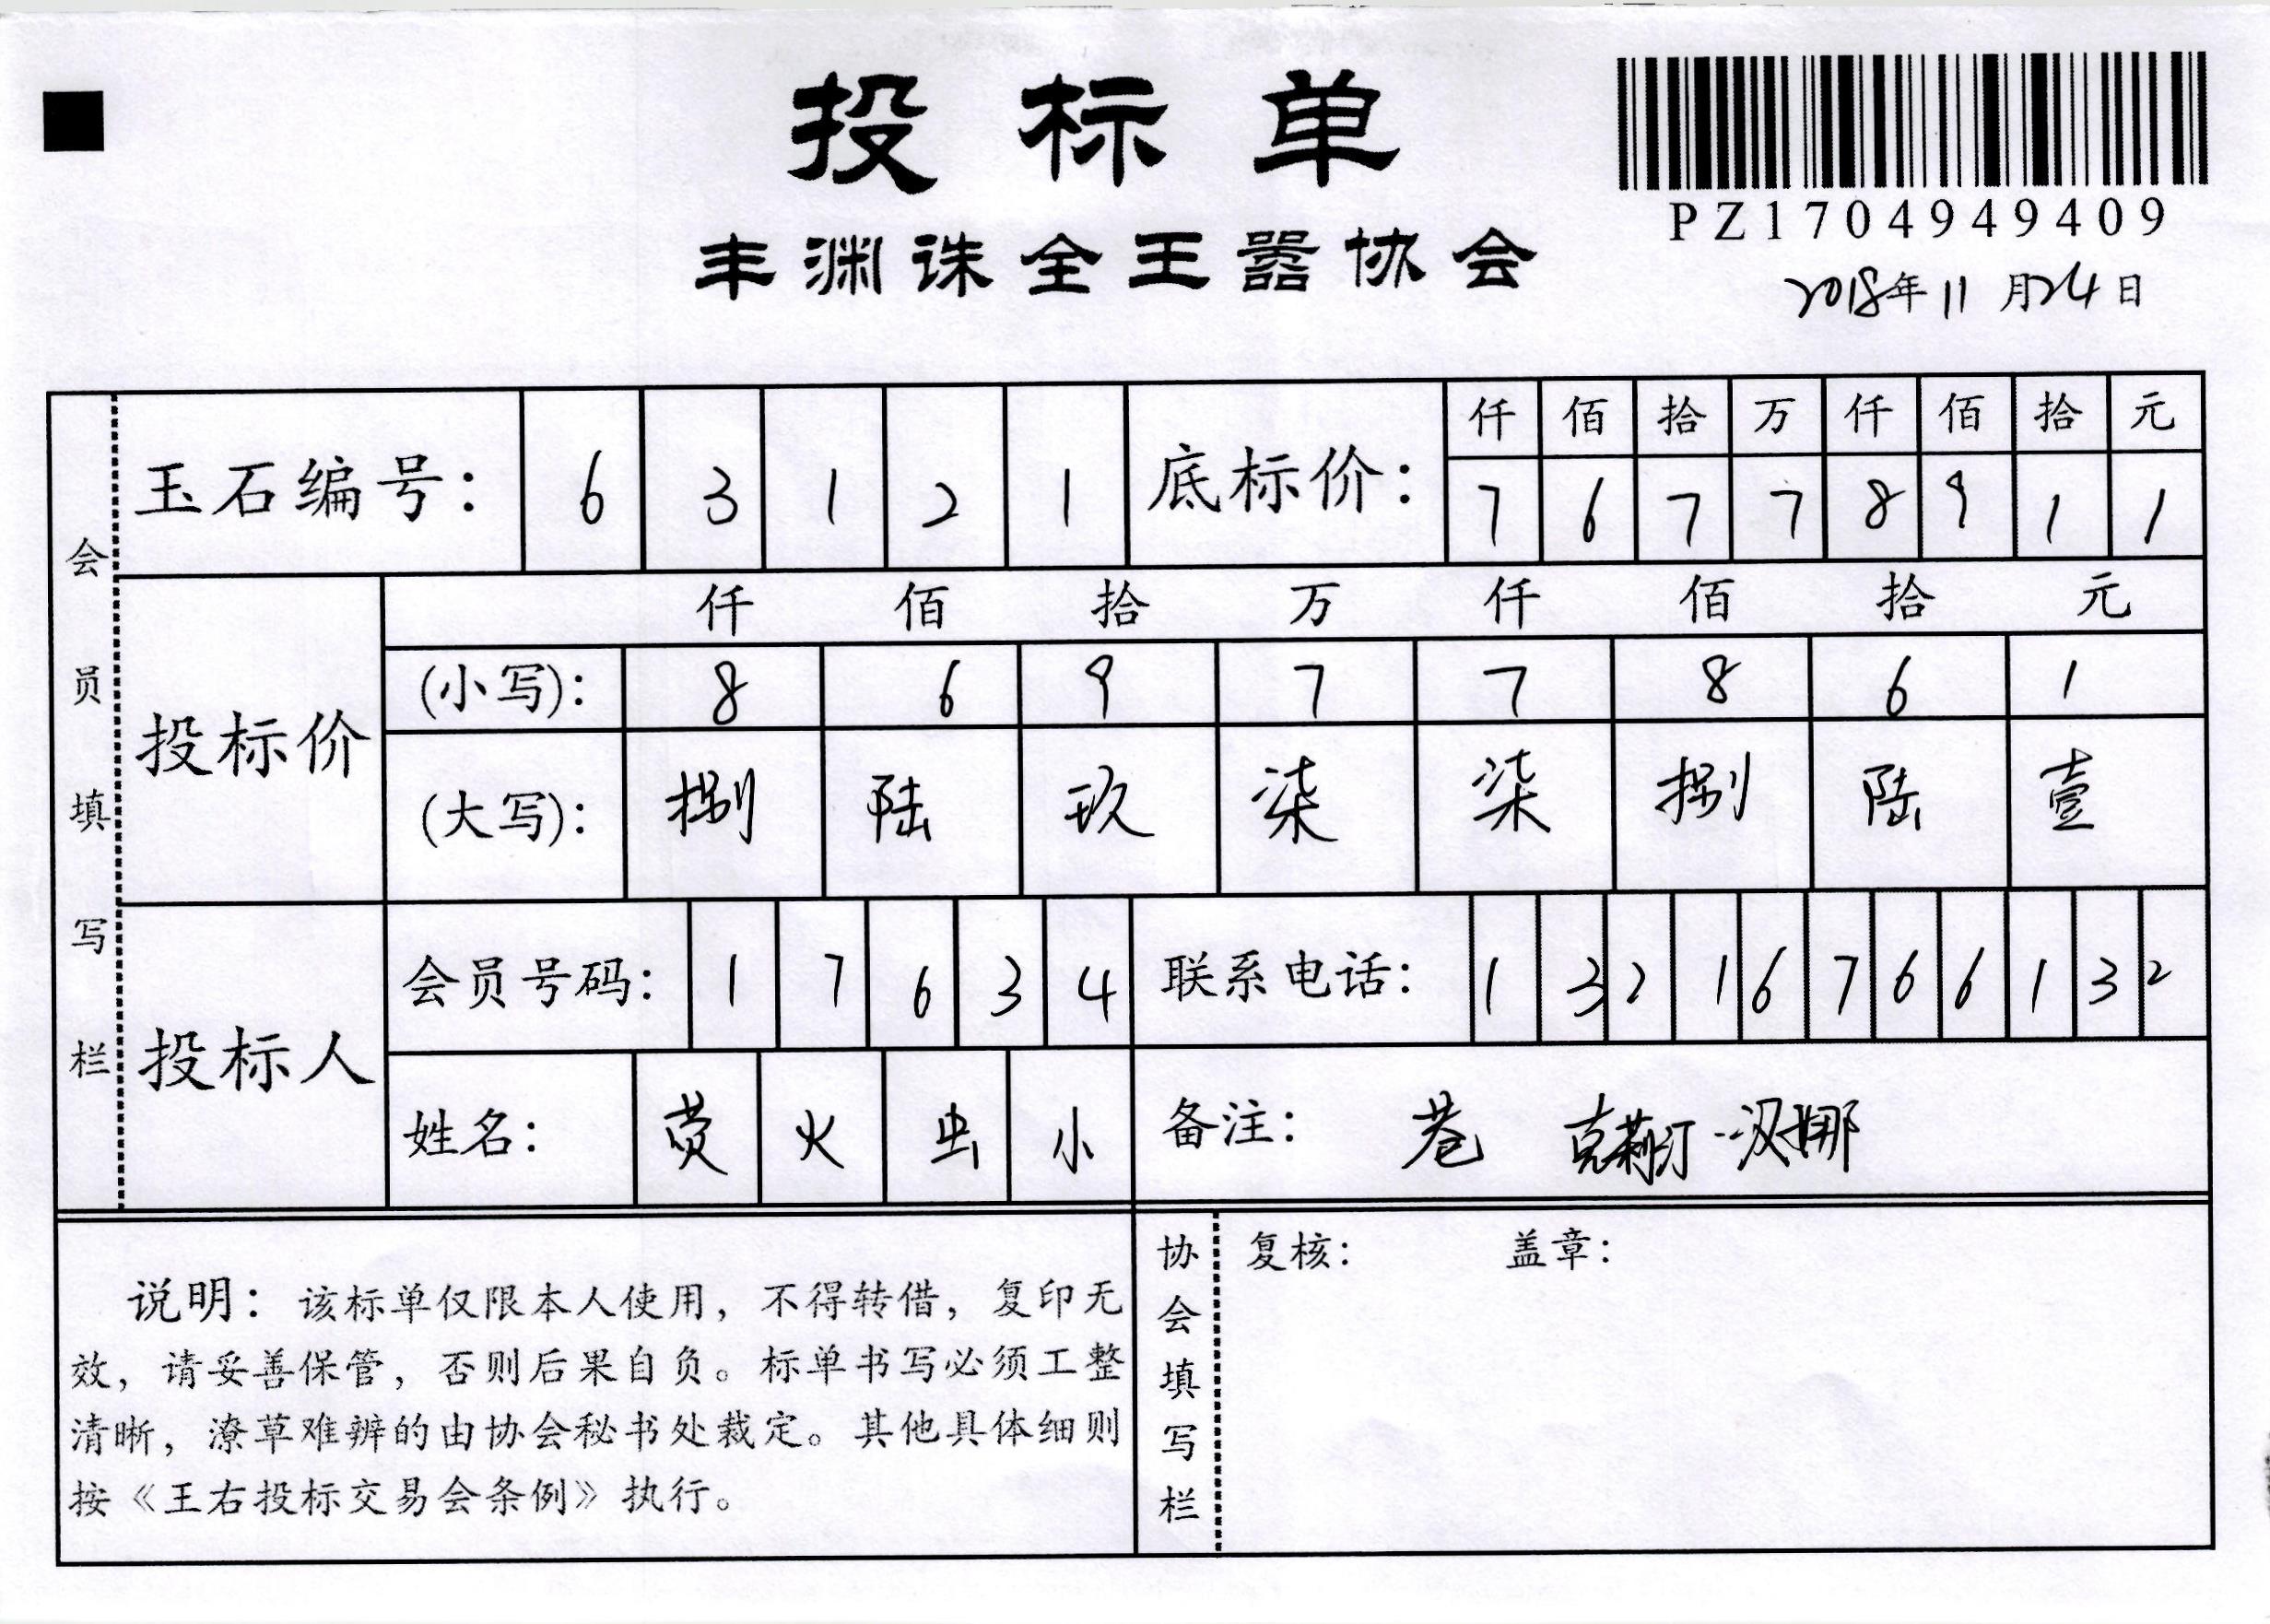 投标单
PZ1704949409
丰渊诛全王嚣协会
2018年11月24日
会员填写栏
玉石编号：63121
底标价：
仟佰拾万仟佰拾元
76778911
投标价
仟佰拾万仟佰拾元
(小写)：86977861
(大写)：捌陆玖柒柒捌陆壹
投标人
会员号码：17634
联系电话：13216766132
姓名：荧火虫小
备注：巷 克莉汀·汉娜
说明：该标单仅限本人使用，不得转借，复印无
效，请妥善保管，否则后果自负。标单书写必须工整
清晰，潦草难辨的由协会秘书处裁定。其他具体细则
按《王右投标交易会条例》执行。
协会填写栏
复核：
盖章：